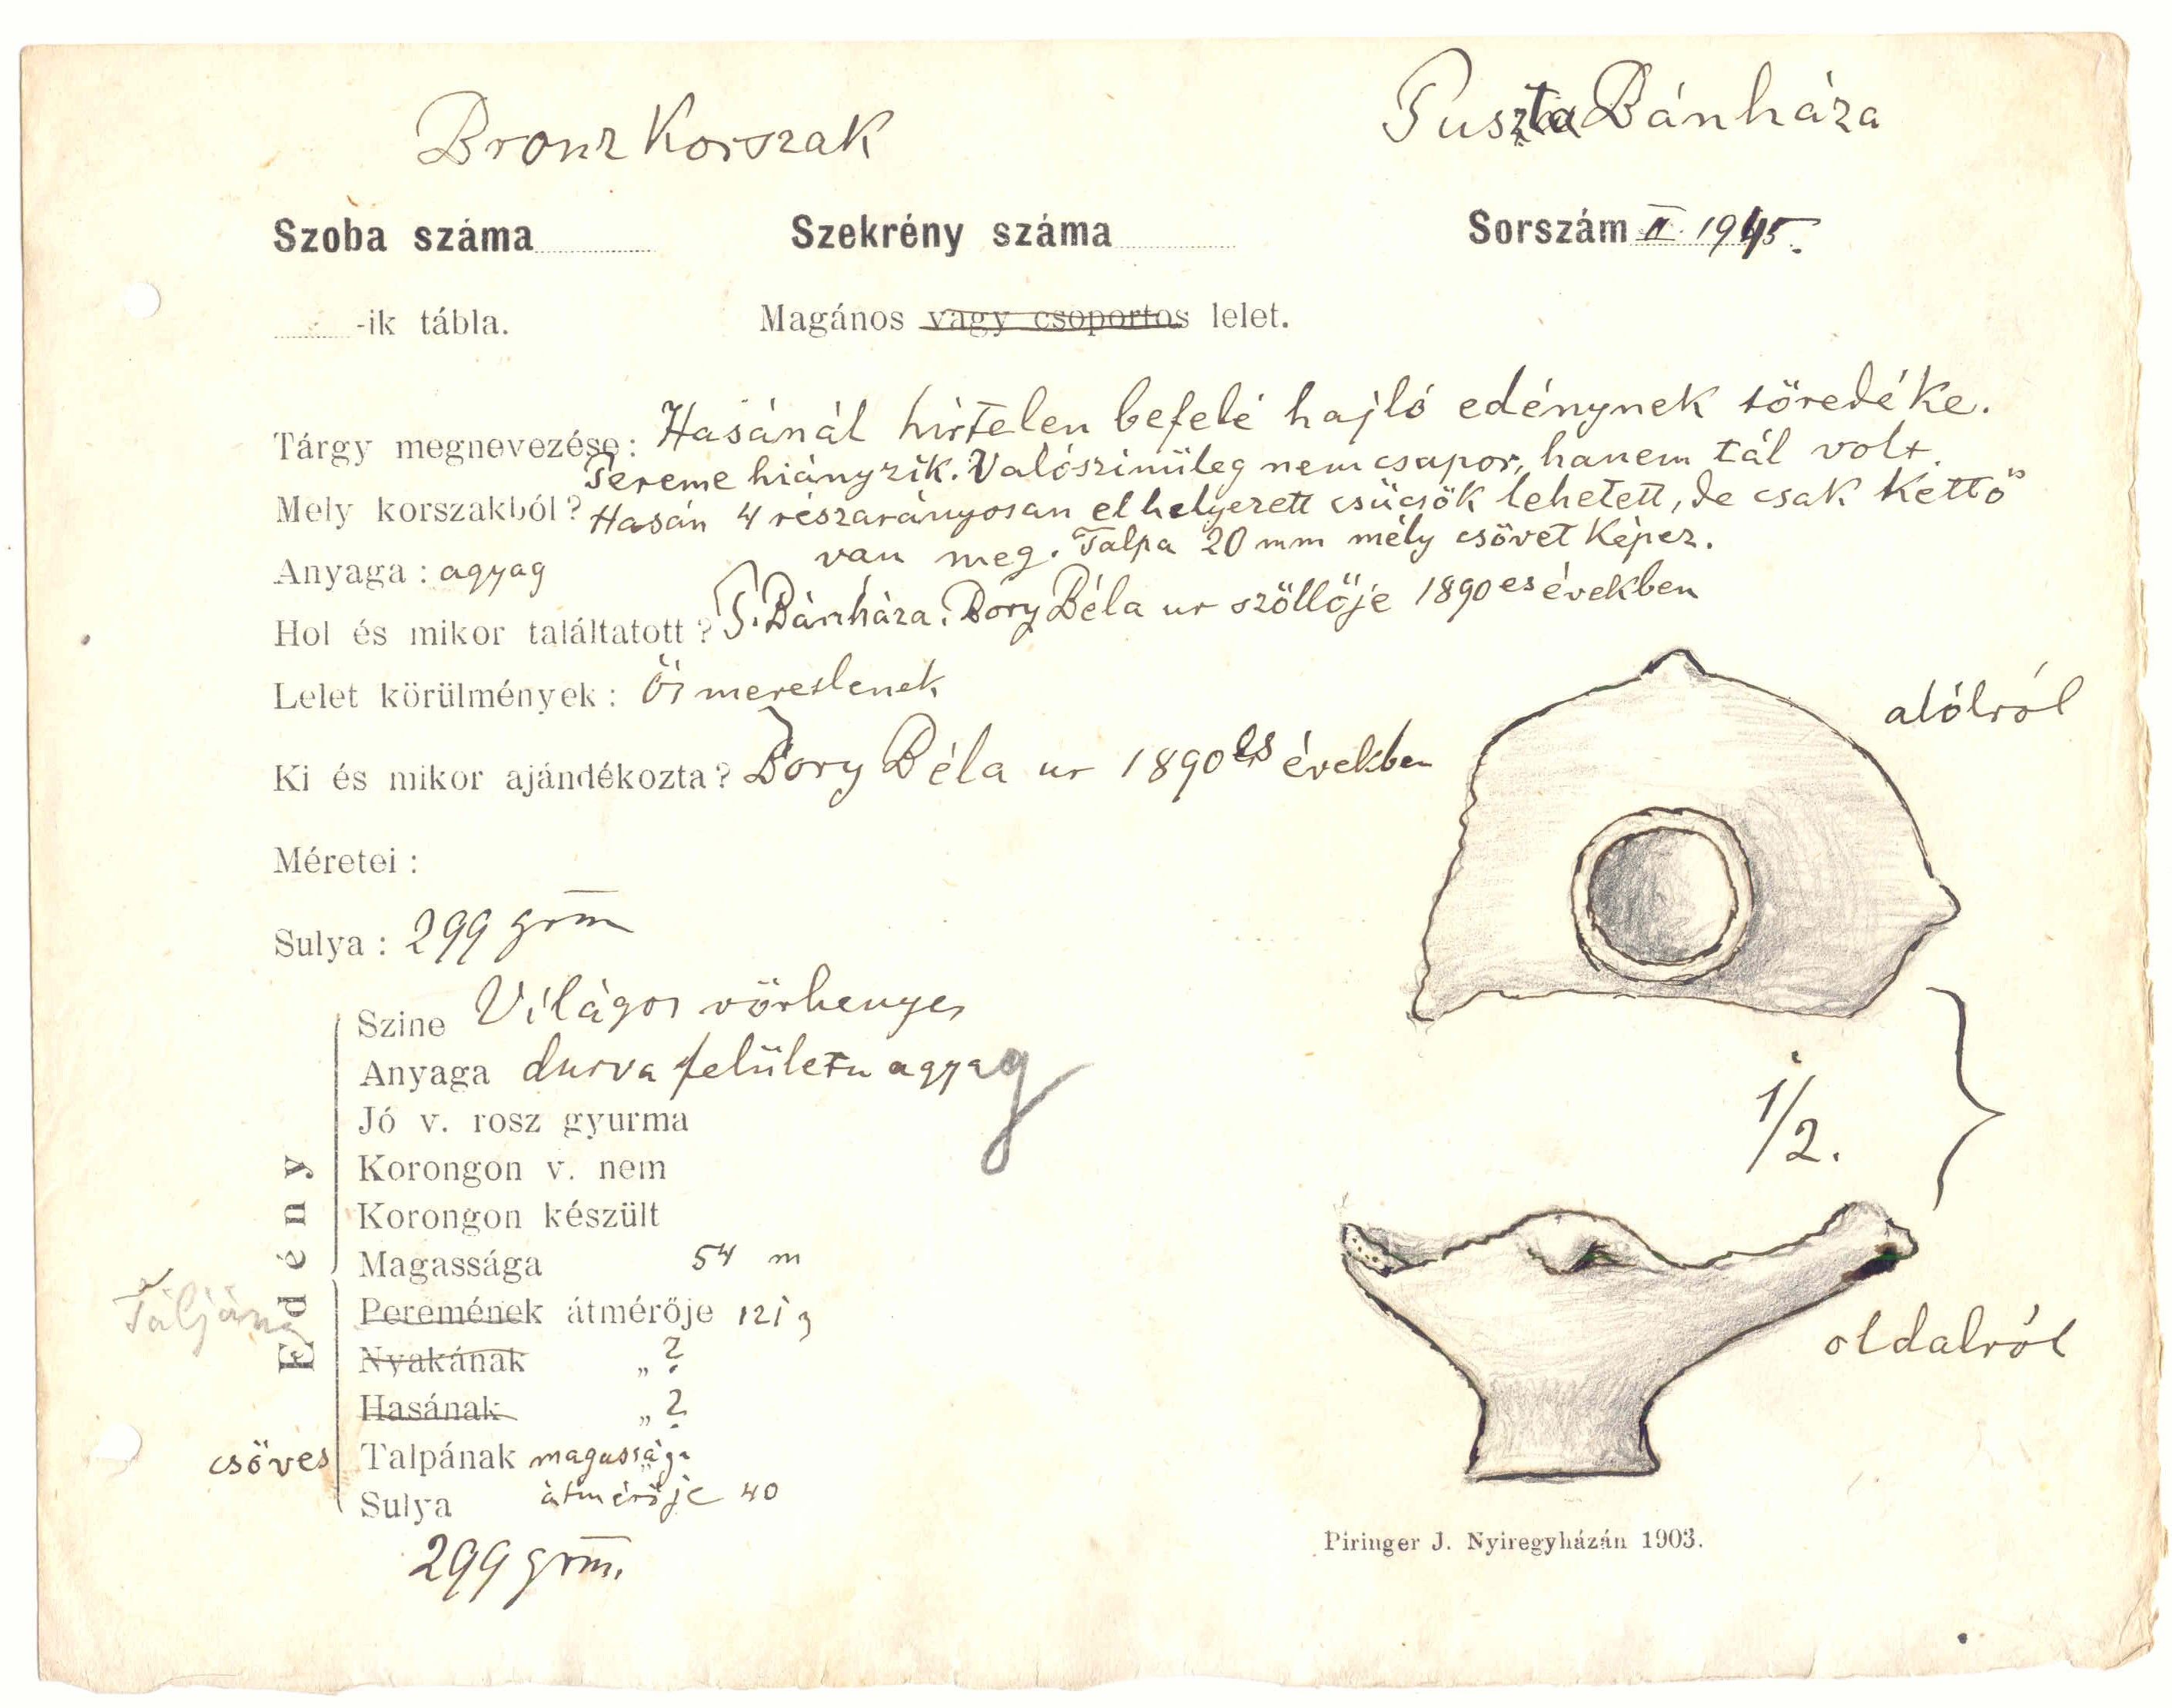 Bronz Korszak
Puszta Bánháza
Szoba száma
Szekrény száma
Sorszám II. 1945.
-ik tábla.
Magános vagy csoportos lelet.
Tárgy megnevezése: Hasánál hirtelen befelé hajló edénynek töredéke.
Pereme hiányzik. Valószinüleg nem csupor, hanem tál volt.
Mely korszakból? Hasán 4 részarányosan elhelyezett csücsök lehetett, de csak kettő
van meg. Talpa 20 mm mély csövet képez.
Anyaga: agyag
Hol és mikor találtatott? P. Bánháza. Bory Béla ur szöllője 1890es években
Lelet körülmények:
Ki és mikor ajándékozta? Bory Béla ur 1890es években
alólról
Méretei:
Sulya: 299 grm
Edény
Szine Világos vörhenyes
Anyaga durva felületü agyag
Jó v. rosz gyurma
Korongon v. nem
Korongon készült
1/2.
Magassága 54 m
Táljáng
Peremének átmérője 121
Nyakának „ ?
Hasának „ ?
oldalról
csöves Talpának magassága
Sulya átmérője 40
299 grm.
Piringer J. Nyiregyházán 1903.